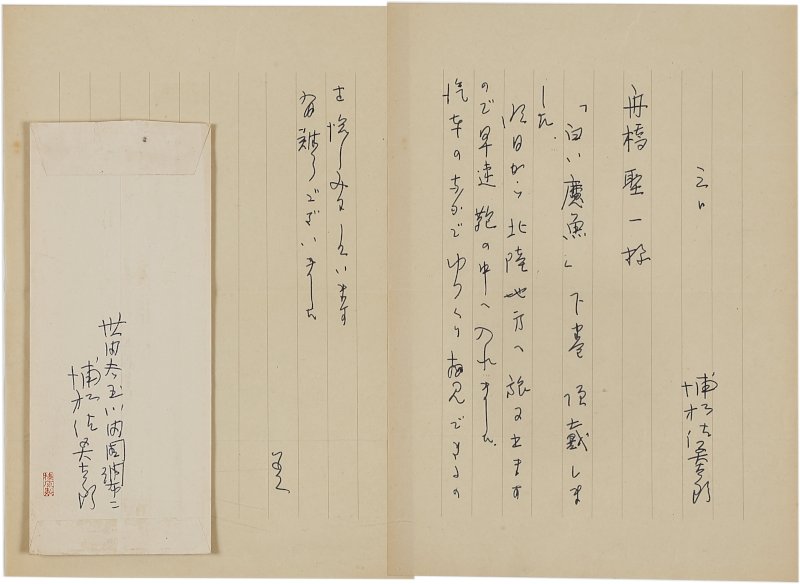 三日
浦松佐美太郎
舟橋聖一様
「白い魔魚」下巻 頂戴しま
した。
明日から北陸地方へ旅に出ます
ので早速鞄の中へ入れました。
汽車のなかでゆっくり拝見できるの
を愉しみにしています
有難うございました
世田谷玉川田園調布二
浦松佐美太郎